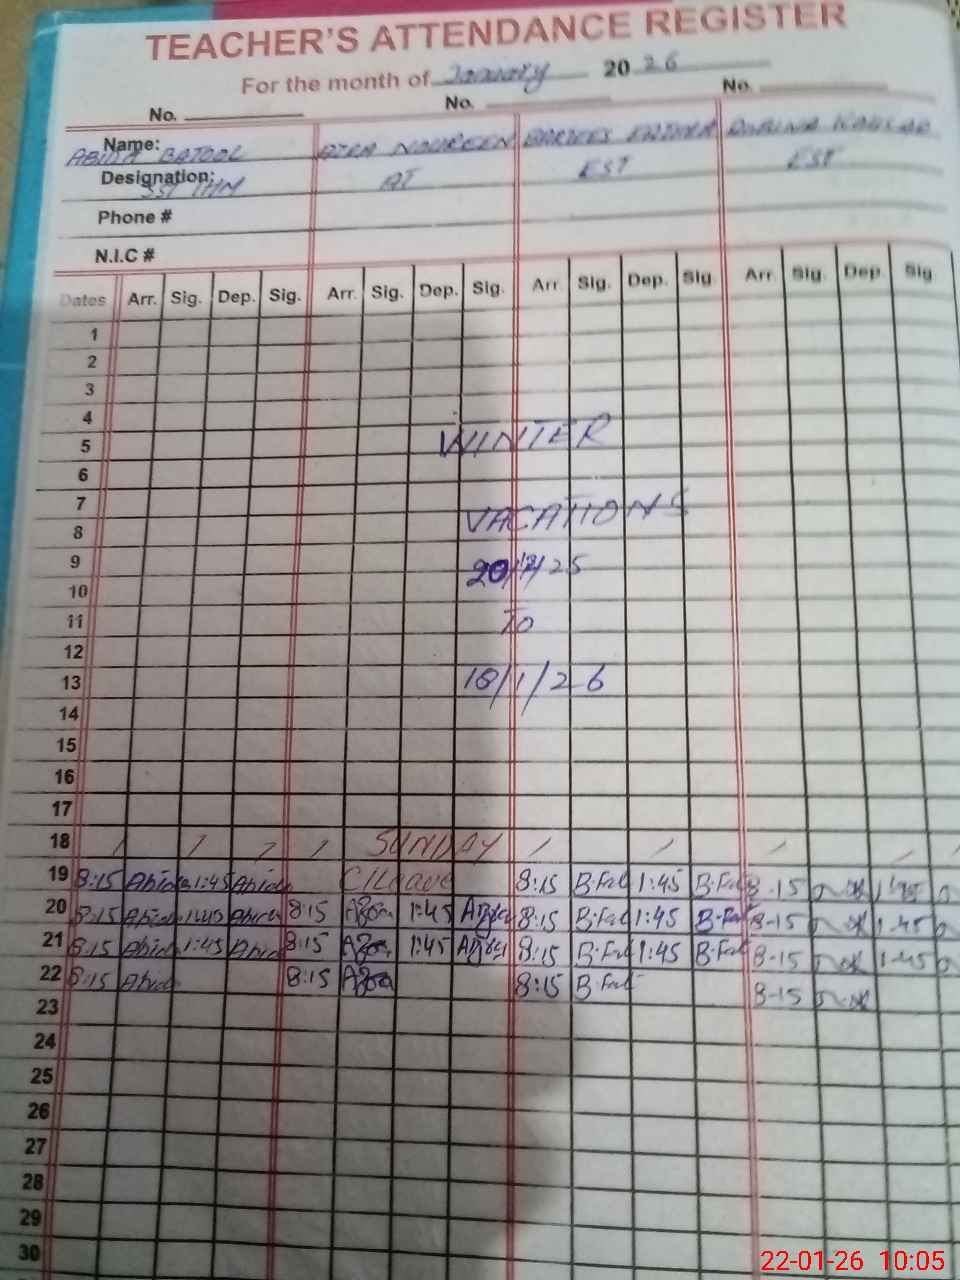 TEACHER'S ATTENDANCE REGISTER
For the month of January 2026
No. No. No.
Name: ABIDA BATOOL NOUREEN FATIMA
Designation: SST IHM AT EST EST
Phone #
N.I.C #
Dates Arr. Sig. Dep. Sig. Arr. Sig. Dep. Sig. Arr. Sig. Dep. Sig. Arr. Sig. Dep. Sig.
1
2
3
4
5 WINTER
6
7
8 VACATIONS
9
10 20/12/25
11 To
12
13 18/1/26
14
15
16
17
18 SUNDAY
19 8:15 Abida 1:45 Abida C/Leave 8:15 B.Fat 1:45 B.Fat 8-15 1-45
20 8:15 Abida 1:45 Abida 8:15 1:45 8:15 B.Fat 1:45 B.Fat 8-15 1-45
21 8:15 Abida 1:45 Abida 8:15 1:45 8:15 B.Fat 1:45 B.Fat 8-15 1-45
22 8:15 Abida 8:15 8:15 B.Fat 8-15
23
24
25
26
27
28
29
30
22-01-26 10:05